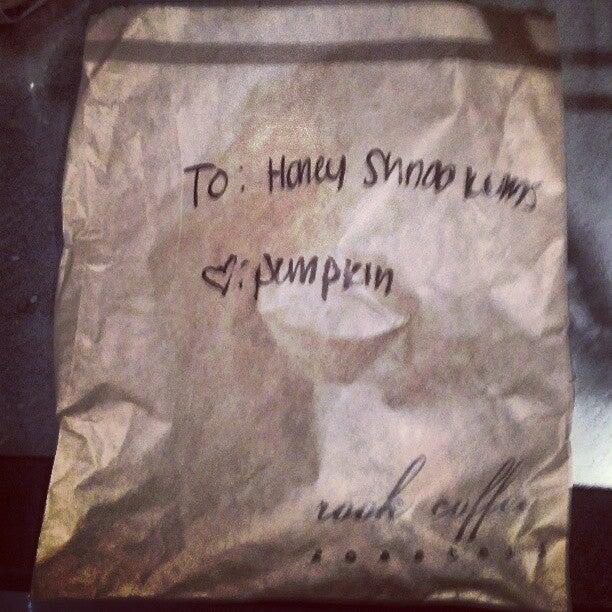 TO: Honey Shnookums
♡: pumpkin
rook coffee
ROASTERY